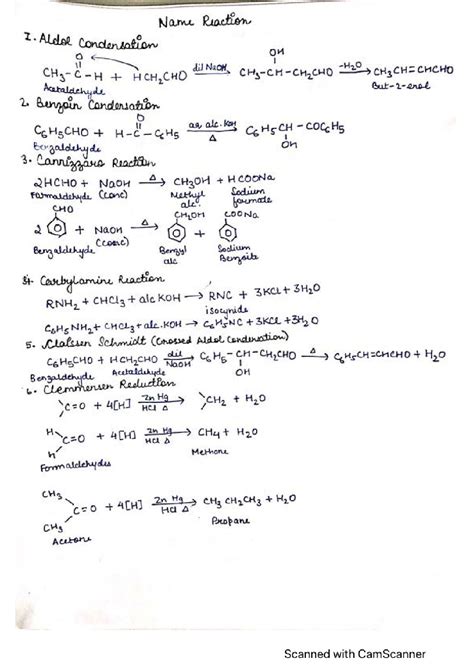 Name Reaction
1. Aldol Condensation
O
OH
CH3-C-H + HCH2CHO dil NaOH → CH3-CH-CH2CHO -H2O → CH3CH=CHCHO
Acetaldehyde
But-2-enal
2. Benzoin Condensation
O
C6H5CHO + H-C-C6H5 aq alc. KOH Δ → C6H5CH-COC6H5
Benzaldehyde
OH
3. Cannizzaro Reaction
2HCHO + NaOH Δ → CH3OH + HCOONa
Formaldehyde (conc) Methyl alc. Sodium formate
CHO CH2OH COONa
2 + NaOH Δ → +
Benzaldehyde (conc) Benzyl alc Sodium Benzoate
4. Carbylamine Reaction
RNH2 + CHCl3 + alc KOH → RNC + 3KCl + 3H2O
isocynide
C6H5NH2 + CHCl3 + alc. KOH → C6H5NC + 3KCl + 3H2O
5. Claisen Schmidt (Crossed Aldol Condensation)
C6H5CHO + HCH2CHO dil NaOH → C6H5-CH-CH2CHO Δ → C6H5CH=CHCHO + H2O
Benzaldehyde Acetaldehyde OH
6. Clemmensen Reduction
C=O + 4[H] Zn Hg HCl Δ → CH2 + H2O
H
C=O + 4[H] Zn Hg HCl Δ → CH4 + H2O
H
Formaldehydes Methane
CH3
C=O + 4[H] Zn Hg HCl Δ → CH3CH2CH3 + H2O
CH3 Propane
Acetone
Scanned with CamScanner